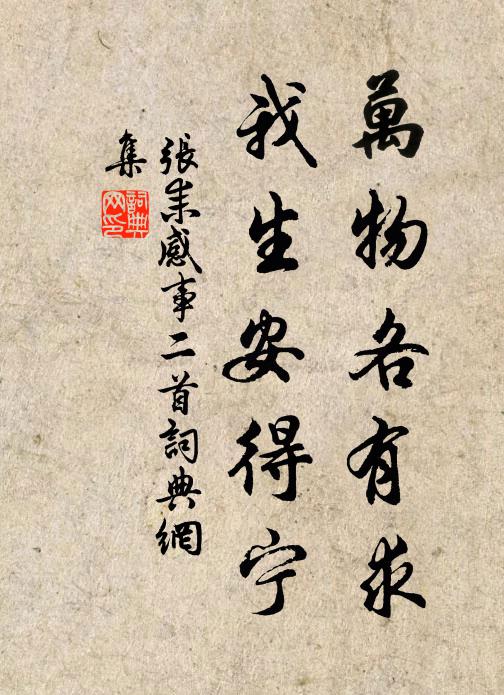 萬物各有求
我生安得宁
張耒感事二首詞典網
集
詞典
网印